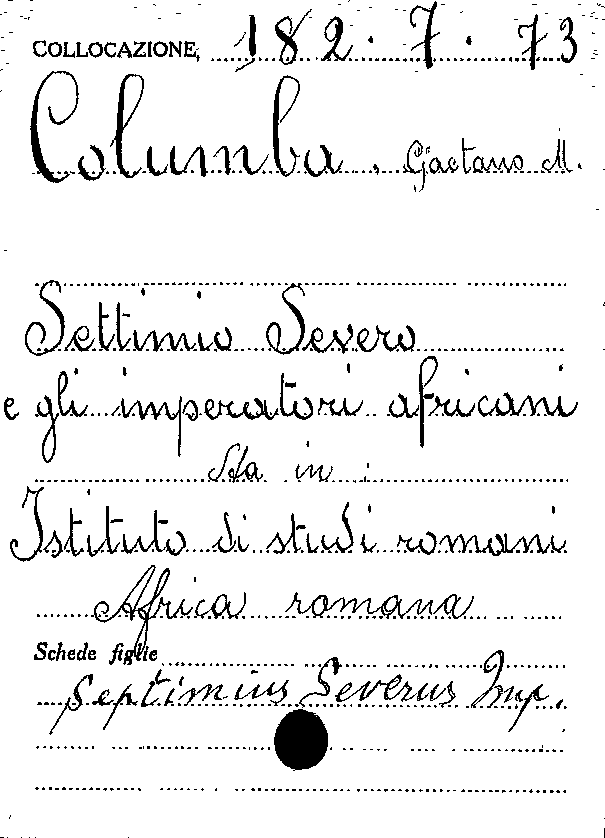 COLLOCAZIONE 182.7.73
Columba, Gaetano M.
Settimio Severo
e gli imperatori africani
Sta in :
Istituto di studi romani
Africa romana
Schede figlie
Septimius Severus Imp.